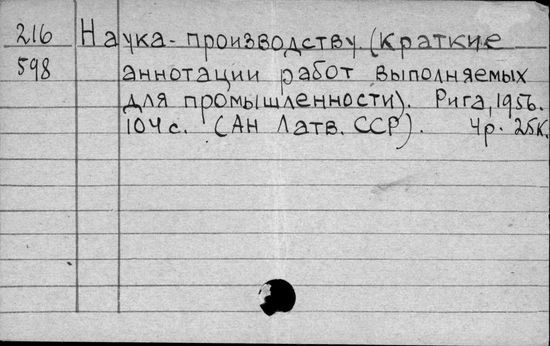 216 Наука-производству. (Краткие
598 аннотации работ выполняемых
для промышленности). Рига, 1956.
104 с. (Ан Латв. ССР). 4р. 25к.